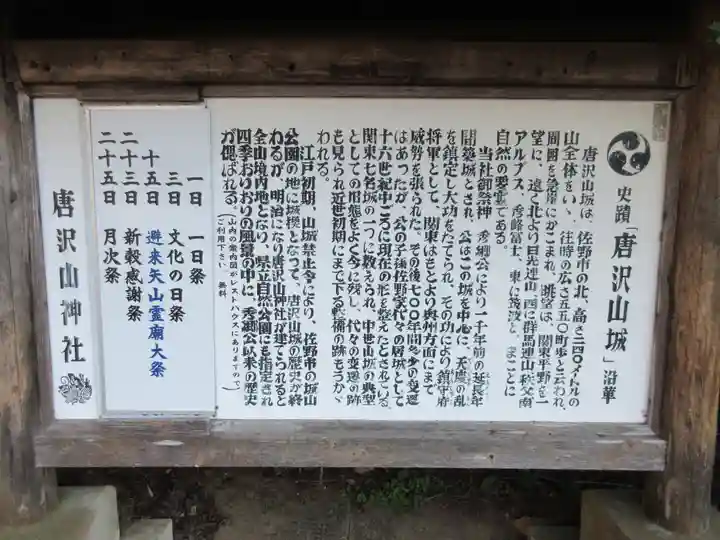 史蹟「唐沢山城」沿革
唐沢山城は、佐野市の北、高さ二四〇メートルの
山全体をいゝ、往時の広さ五五〇町歩と云われ、
周囲を急崖にかこまれ、眺望は、関東平野を一
望に、遠く北より日光連山、西に群馬連山、秩父、南
アルプス、秀峰富士、東に筑波と、まことに
自然の要害である。
当社御祭神 秀郷公により一千年前の延長年
間築城とされ、公はこの城を中心に、天慶の乱
を鎮定し大功をたてられ、その功により鎮守府
将軍として、関東はもとより奥州方面にまで
威勢を張られた。その後七〇〇年間多少の変遷
はあったが、公の子孫佐野家代々の居城として
十六世紀中ごろに現在の形を整えたとされている。
関東七名城の一つに数えられ、中世山城の典型
としての形態をよく今に残し、代々の変遷の跡
も見られ近世初期にまで下る戦備の跡もうかゞ
われる。
江戸初期、山城禁止令により、佐野市の城山
公園の地に城移となって、唐沢山城の歴史が終
わるが、明治になり唐沢山神社が建てられると
全山境内地となり、県立自然公園にも指定され
四季おりおりの風景の中に、秀郷公以来の歴史
が偲ばれる。
(山内の案内図がレストハウスにありますので)
(ご利用下さい 無料)
一日 一日祭
三日 文化の日祭
十五日 避来矢山霊廟大祭
二十三日 新穀感謝祭
二十五日 月次祭
唐沢山神社